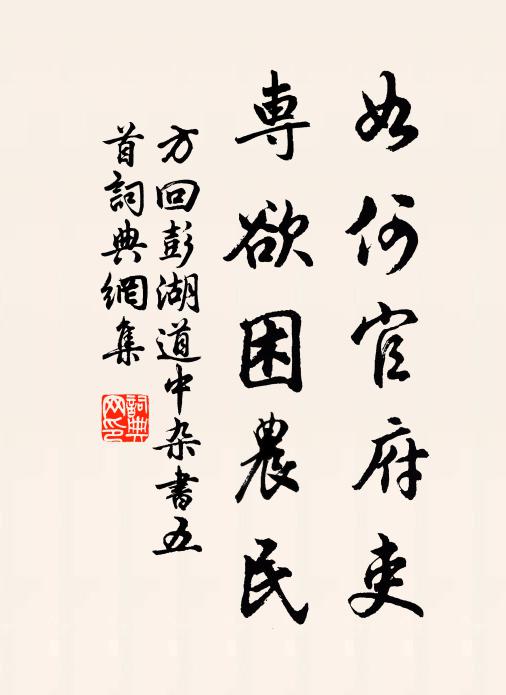 如何官府吏
專欲困農民
方回彭湖道中杂書五
首詞典網集
詞典
网印